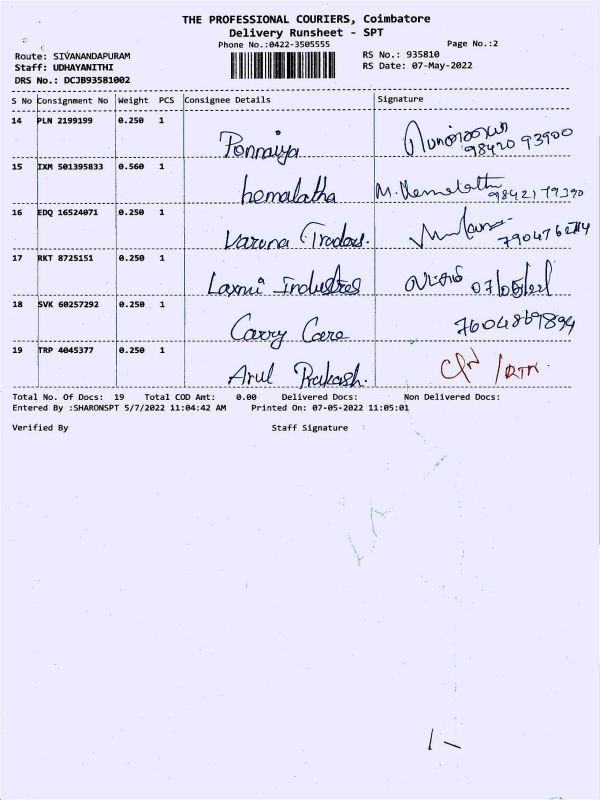 THE PROFESSIONAL COURIERS, Coimbatore
Delivery Runsheet - SPT
Phone No.:0422-3505555
Page No.:2
Route: SIVANANDAPURAM
RS No.: 935810
Staff: UDHAYANITHI
RS Date: 07-May-2022
DRS No.: DCJB93581002
S No Consignment No Weight PCS Consignee Details Signature
14 PLN 2199199 0.250 1
Ponnaiya 98420 93900
15 IXM 501395833 0.560 1
hemalatha M. Hemalatha 9842179390
16 EDQ 16524071 0.250 1
Varuna Traders.
17 RKT 8725151 0.250 1
Laxmi Industries 07/05/22
18 SVK 60257292 0.250 1
Carry Care 7604869894
19 TRP 4045377 0.250 1
Arul Prakash. /RTN.
Total No. Of Docs: 19 Total COD Amt: 0.00 Delivered Docs: Non Delivered Docs:
Entered By :SHARONSPT 5/7/2022 11:04:42 AM Printed On: 07-05-2022 11:05:01
Verified By Staff Signature